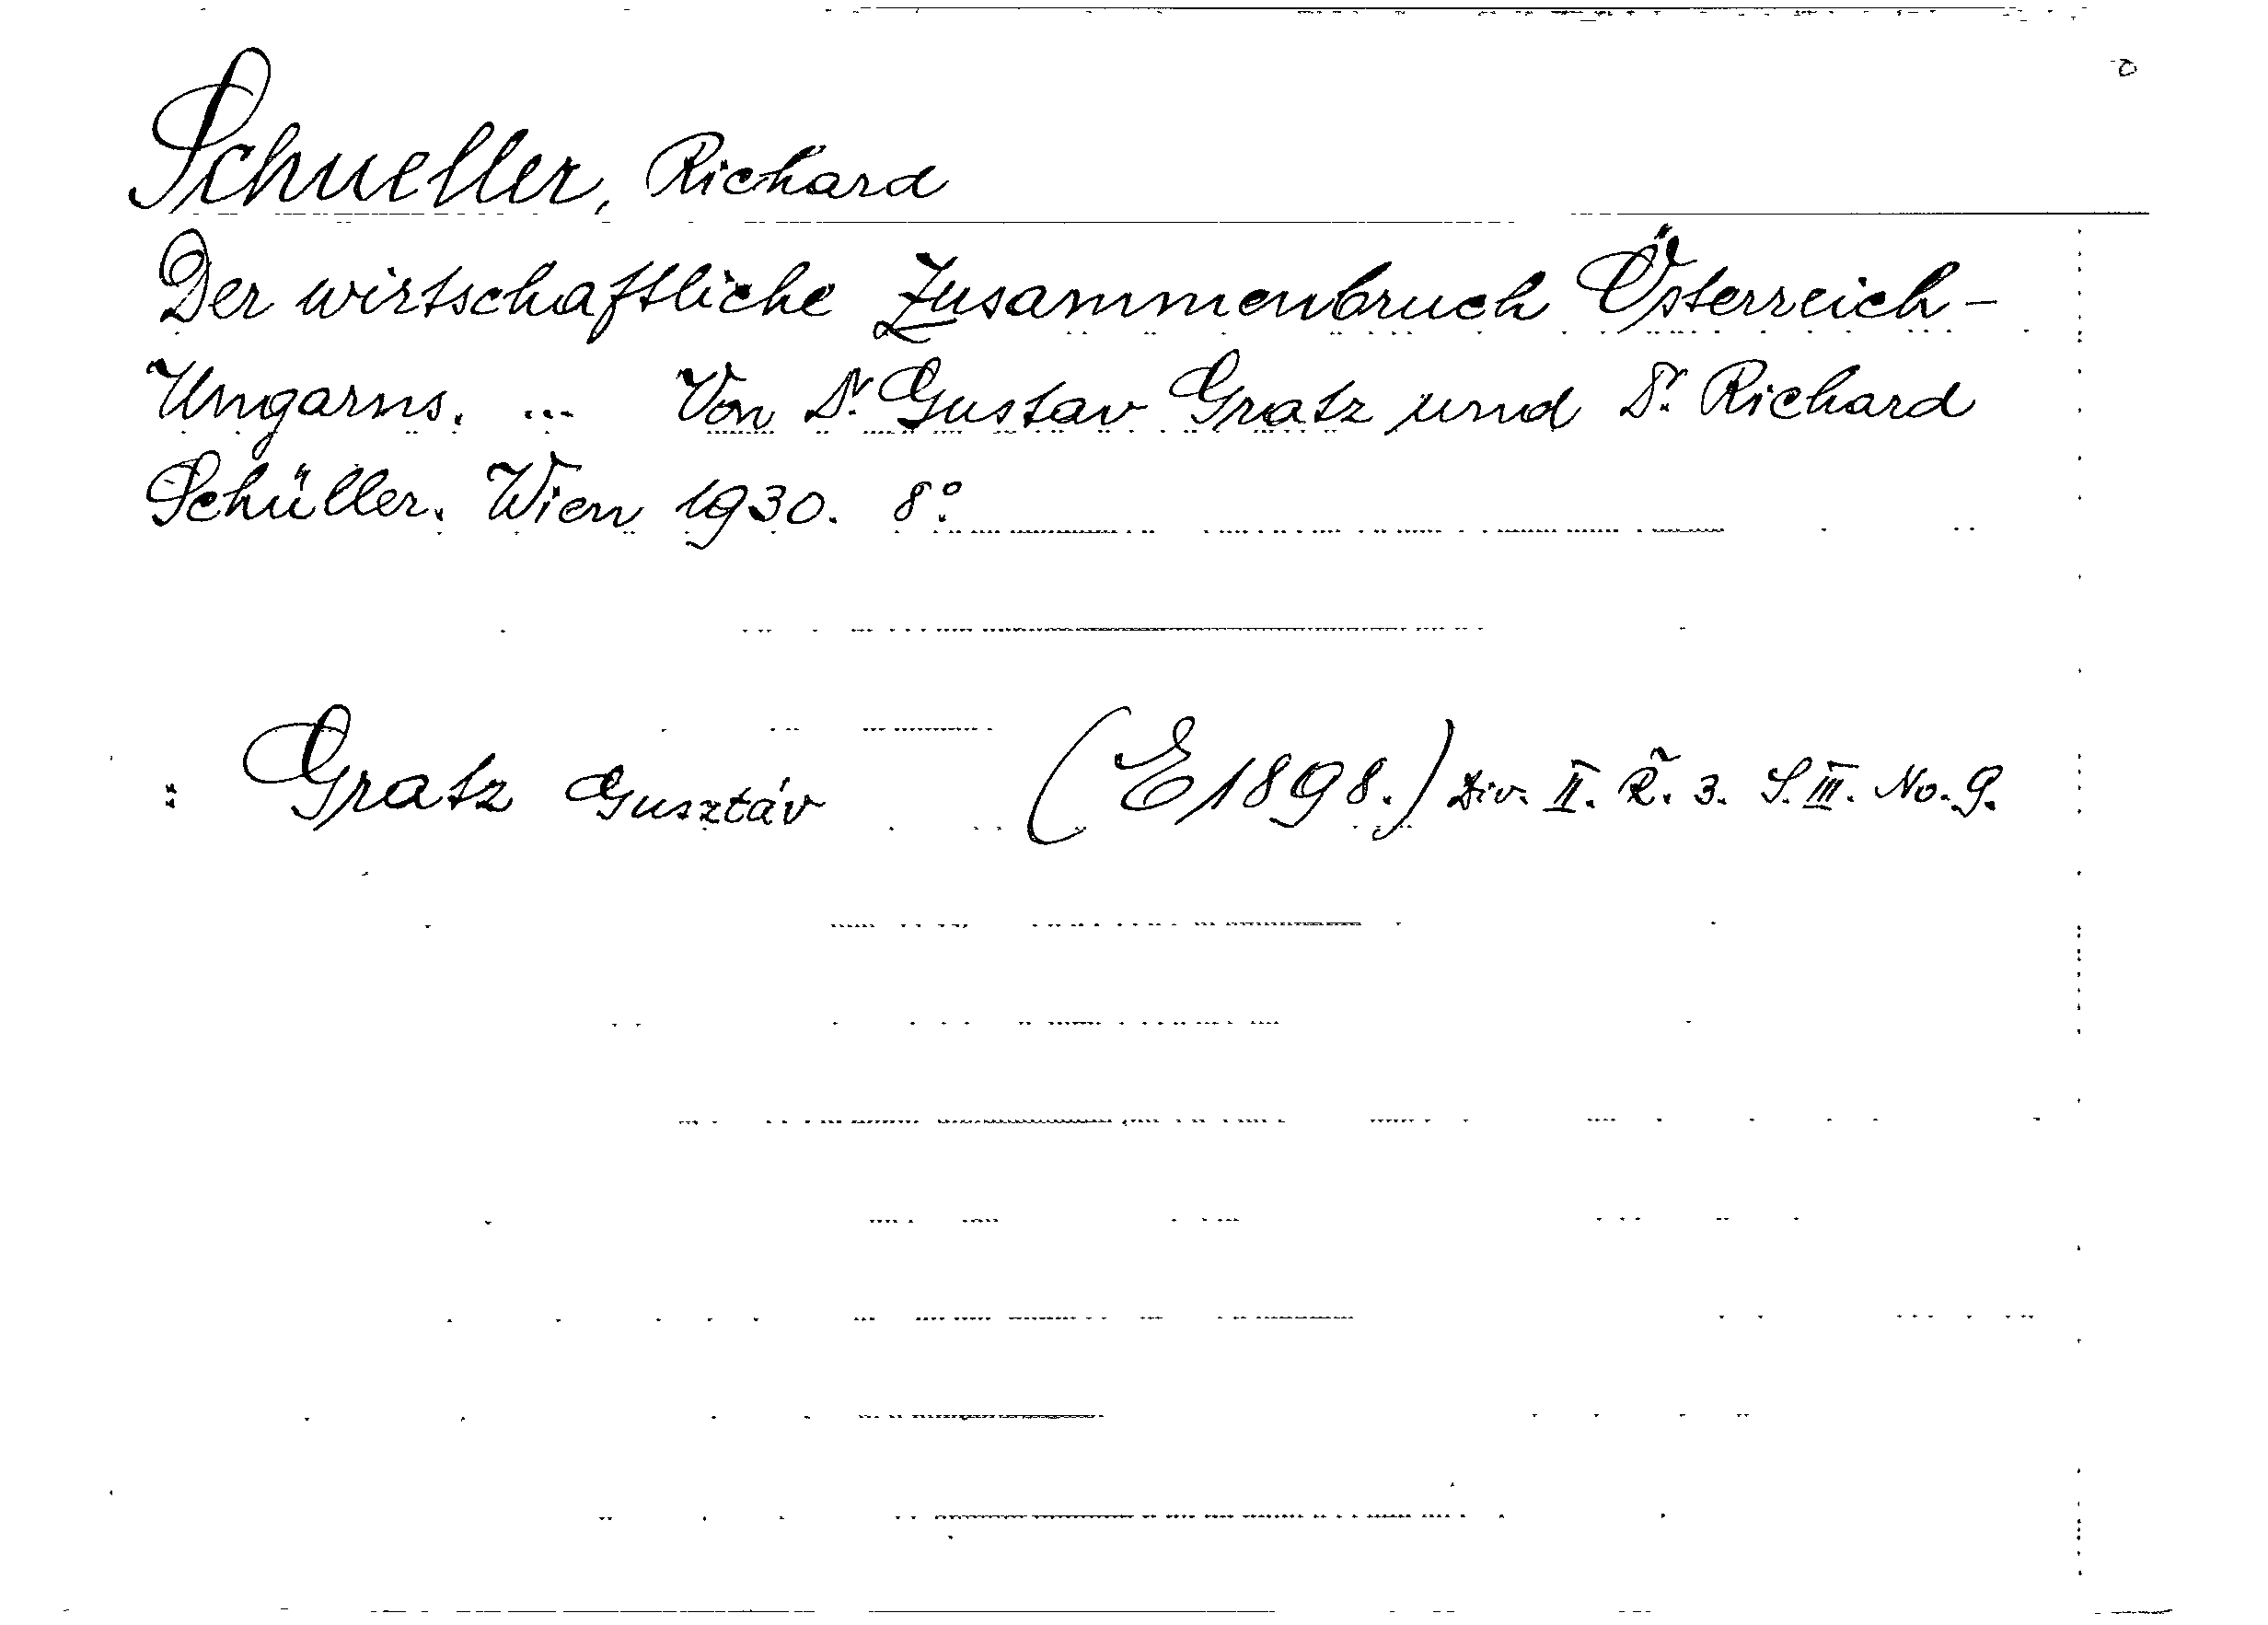 Schueller, Richard
Der wirtschaftliche Zusammenbruch Österreich-
Ungarns. ... Von Dr. Gustav Gratz und Dr. Richard
Schüller. Wien 1930. 8°.
: Gratz Gusztáv (E 1898.) Div. II. R̃. 3. S. III. No. 9.